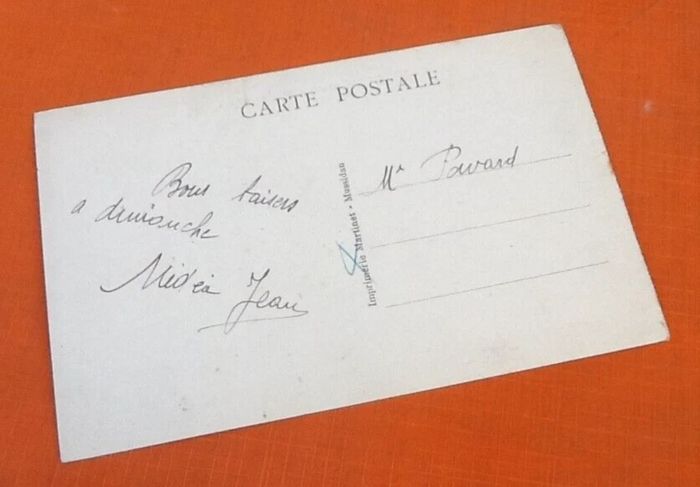 CARTE POSTALE
Bons baisers
a dimanche
Jean
Imprimerie Martinet - Mussidan
Mr Pavard